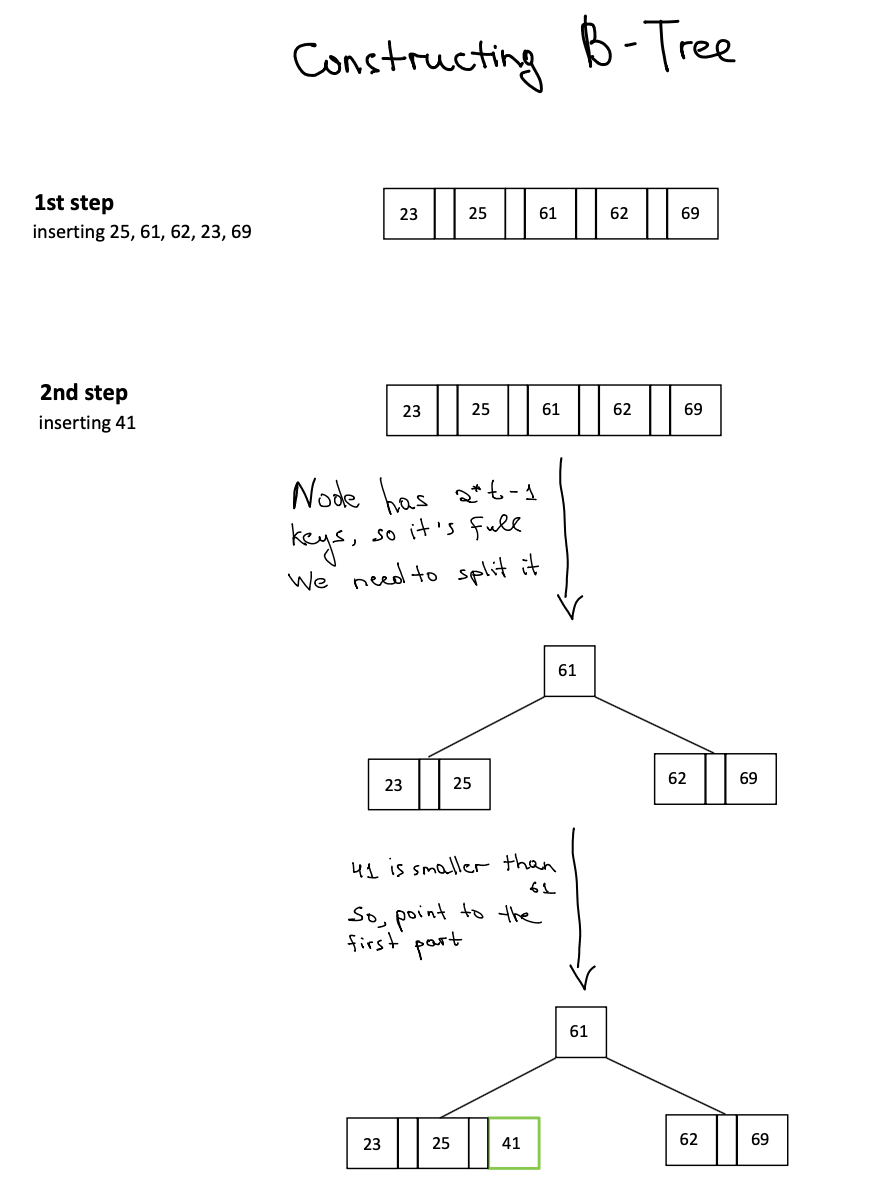 Constructing B-Tree
1st step
inserting 25, 61, 62, 23, 69
23 25 61 62 69
2nd step
inserting 41
23 25 61 62 69
Node has 2*t-1
keys, so it's full
We need to split it
61
23 25
62 69
41 is smaller than
61
So, point to the
first part
61
23 25 41
62 69